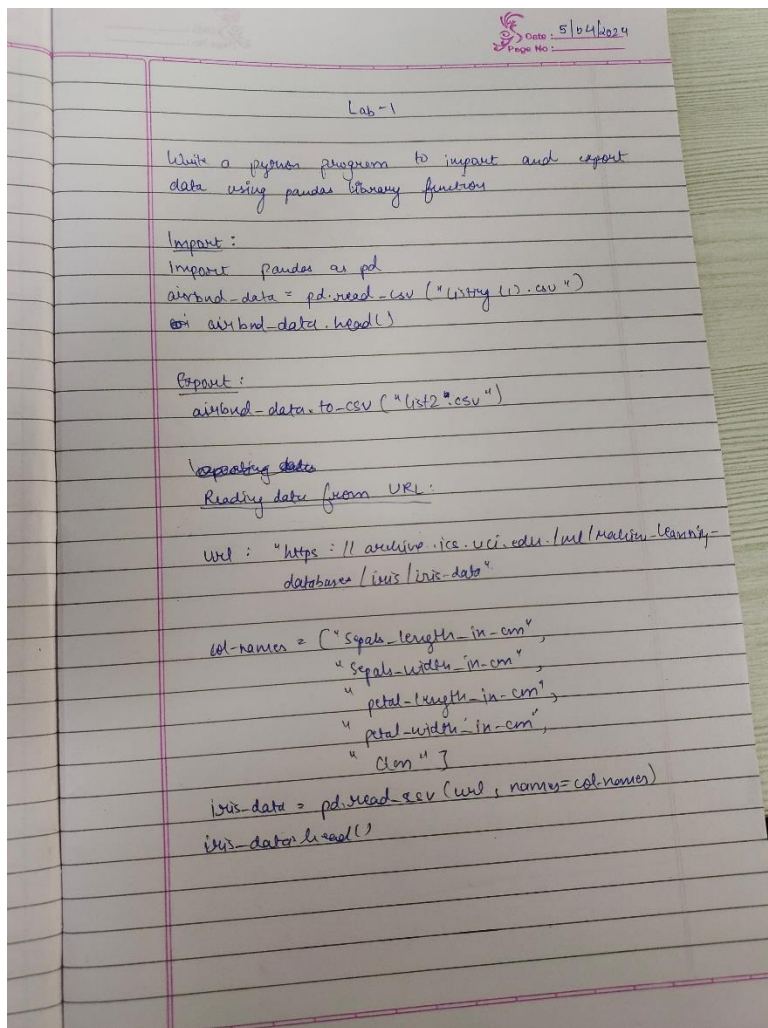 Date : 5/04/2024
Page No :
Lab-1
Write a python program to import and export
data using pandas library function
Import :
import pandas as pd
airbnd_data = pd.read_csv ("listing (1).csv")
airbnd_data.head()
Export :
airbnd_data.to_csv ("list2".csv")
exporting data
Reading data from URL :
url : "https : // archive.ics.uci.edu./ml/machine-learning-
databases / iris / iris-data"
col-names = ["Sepals_length_in_cm",
"sepals_width_in_cm",
"petal_length_in_cm",
"petal_width_in_cm",
"Class"]
iris_data = pd.read_csv (url, names=col-names)
iris_data.head()